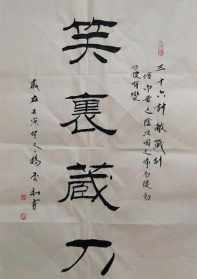 三十六計敵戰計
信而安之陰以圖之備而後動
勿使有變
笑裏藏刀
歲在壬寅